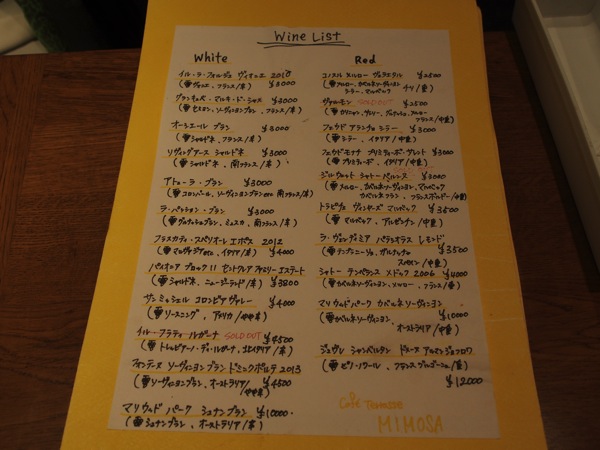 Wine List
White
イル・ラ・フォルジュ ヴィオニエ 2010
(ヴィオニエ、フランス/辛) ¥3000
グランキュベ・マルキ・ド・シャス ¥3000
(セミヨン、ソーヴィニヨンブラン、フランス/辛)
オーシエール ブラン ¥3000
(シャルドネ、フランス/辛)
リヴィングアース シャルドネ ¥3000
(シャルドネ、南フランス/辛)
アトゥーラ・ブラン ¥3000
(コロンバール、ソーヴィニヨンブランetc 南フランス/辛)
ラ・パッション・ブラン ¥3000
(グルナッシュブラン、ミュスカ、南フランス/辛)
フラスカティ・スペリオーレ エポス 2012
(マルヴァジアetc、イタリア/辛) ¥4000
パイオニア ブロック11 セントクレア ファミリーエステート
(シャルドネ、ニュージーランド/辛) ¥3800
サン・ミッシェル コロンビアヴァレー ¥4000
(リースニング、アメリカ/やや辛)
イル・フラティ ルガーナ SOLD OUT ¥4500
(トレッビアーノ・ディ・ルガーナ、北イタリア/辛)
フォンテーヌ ソーヴィニヨンブラン ドミニクポルテ 2013
(ソーヴィニヨンブラン、オーストラリア/やや辛) ¥4500
マリ ウッド パーク シュナンブラン ¥10000
(シュナンブラン、オーストラリア/辛)
Red
コノスル メルロー ヴァラエタル ¥2500
(メルロー、カベルネソーヴィニヨン
シラー、マルベック チリ/重)
ヴァルモン SOLD OUT ¥2500
(カリニャン、サンソー、グルナッシュ、メルロー フランス/中重)
フェウド アランチョ シラー ¥3000
(シラー、イタリア/中重)
フェウドモナチ プリミティーボ・サレント ¥3000
(プリミティーボ、イタリア/中重)
(メルロー、カベルネソーヴィニヨン、マルベック
カベルネフラン、フランスボルドー/中重)
トラピチェ ヴィンヤーズ マルベック ¥3500
(マルベック、アルゼンチン/中重)
ラ・ヴァンディミア パラシオス レモンド
(テンプラニーリョ、ガルナッチャ ¥3500
スペイン/中重)
シャトー テンペランス メドック 2006 ¥4000
(カベルネソーヴィニヨン、メルロー、フランス/重)
マリ ウッドパーク カベルネソーヴィニヨン
(カベルネソーヴィニヨン ¥10000
オーストラリア/中重)
ジュヴレ シャンベルタン ドメーヌ アルマンジョフロワ
(ピノ・ノワール、フランスブルゴーニュ/重)
¥12000
Café Terrasse
MIMOSA